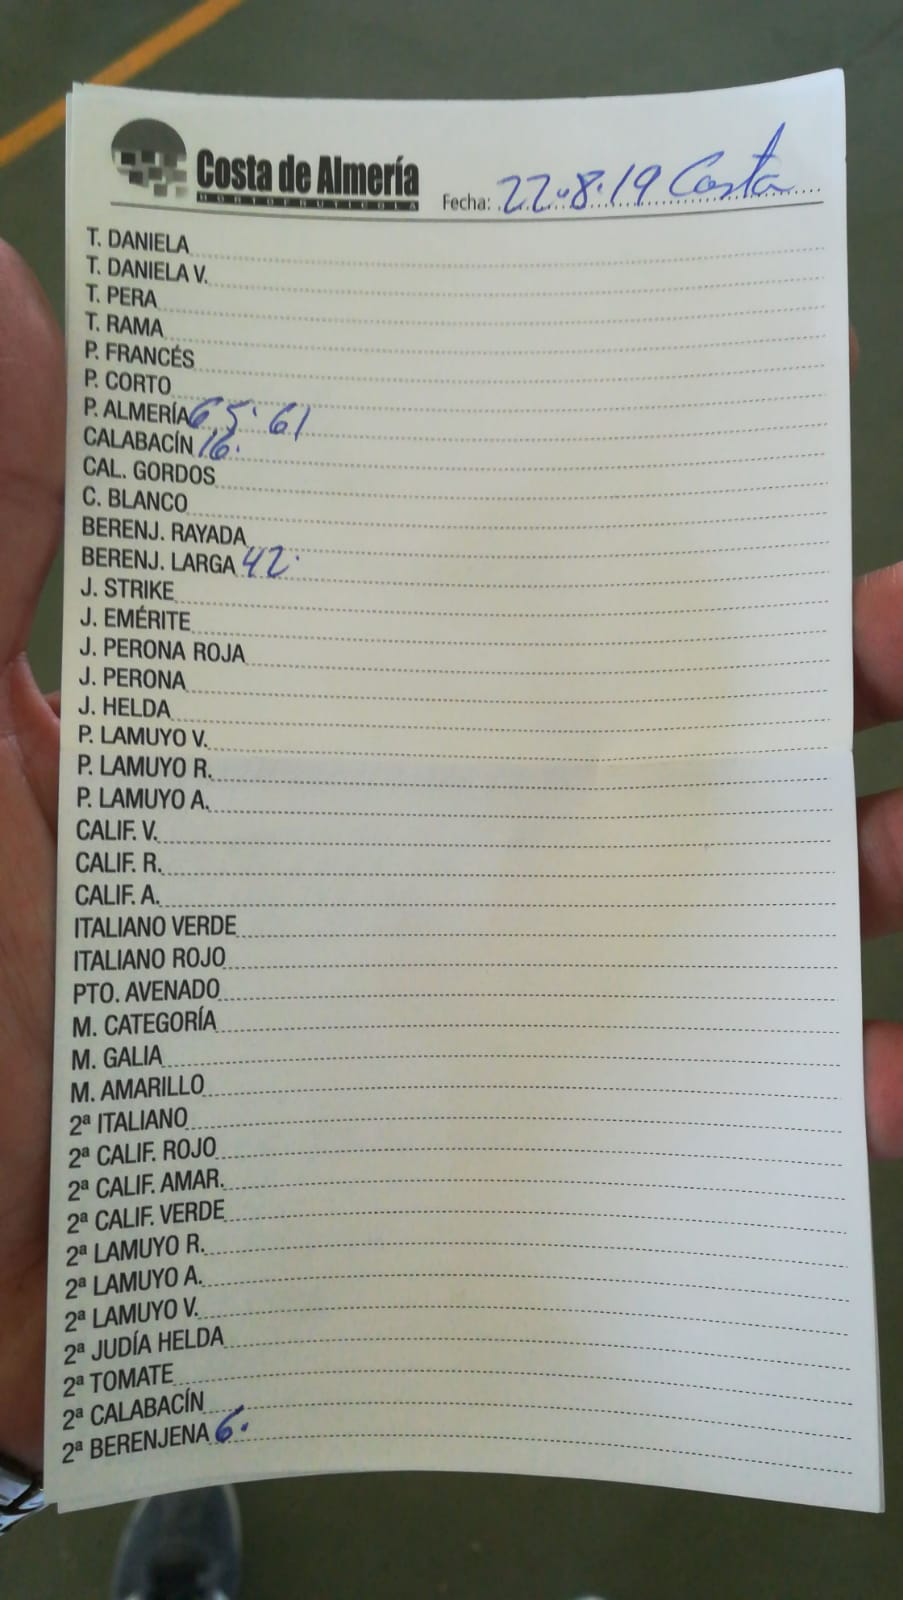 Costa de Almería
HORTOFRUTICOLA
Fecha: 22.8.19 Costa
T. DANIELA
T. DANIELA V.
T. PERA
T. RAMA
P. FRANCÉS
P. CORTO
P. ALMERÍA 65. 61
CALABACÍN 16.
CAL. GORDOS
C. BLANCO
BERENJ. RAYADA
BERENJ. LARGA 42.
J. STRIKE
J. EMÉRITE
J. PERONA ROJA
J. PERONA
J. HELDA
P. LAMUYO V.
P. LAMUYO R.
P. LAMUYO A.
CALIF. V.
CALIF. R.
CALIF. A.
ITALIANO VERDE
ITALIANO ROJO
PTO. AVENADO
M. CATEGORÍA
M. GALIA
M. AMARILLO
2ª ITALIANO
2ª CALIF. ROJO
2ª CALIF. AMAR.
2ª CALIF. VERDE
2ª LAMUYO R.
2ª LAMUYO A.
2ª LAMUYO V.
2ª JUDÍA HELDA
2ª TOMATE
2ª CALABACÍN
2ª BERENJENA 6.